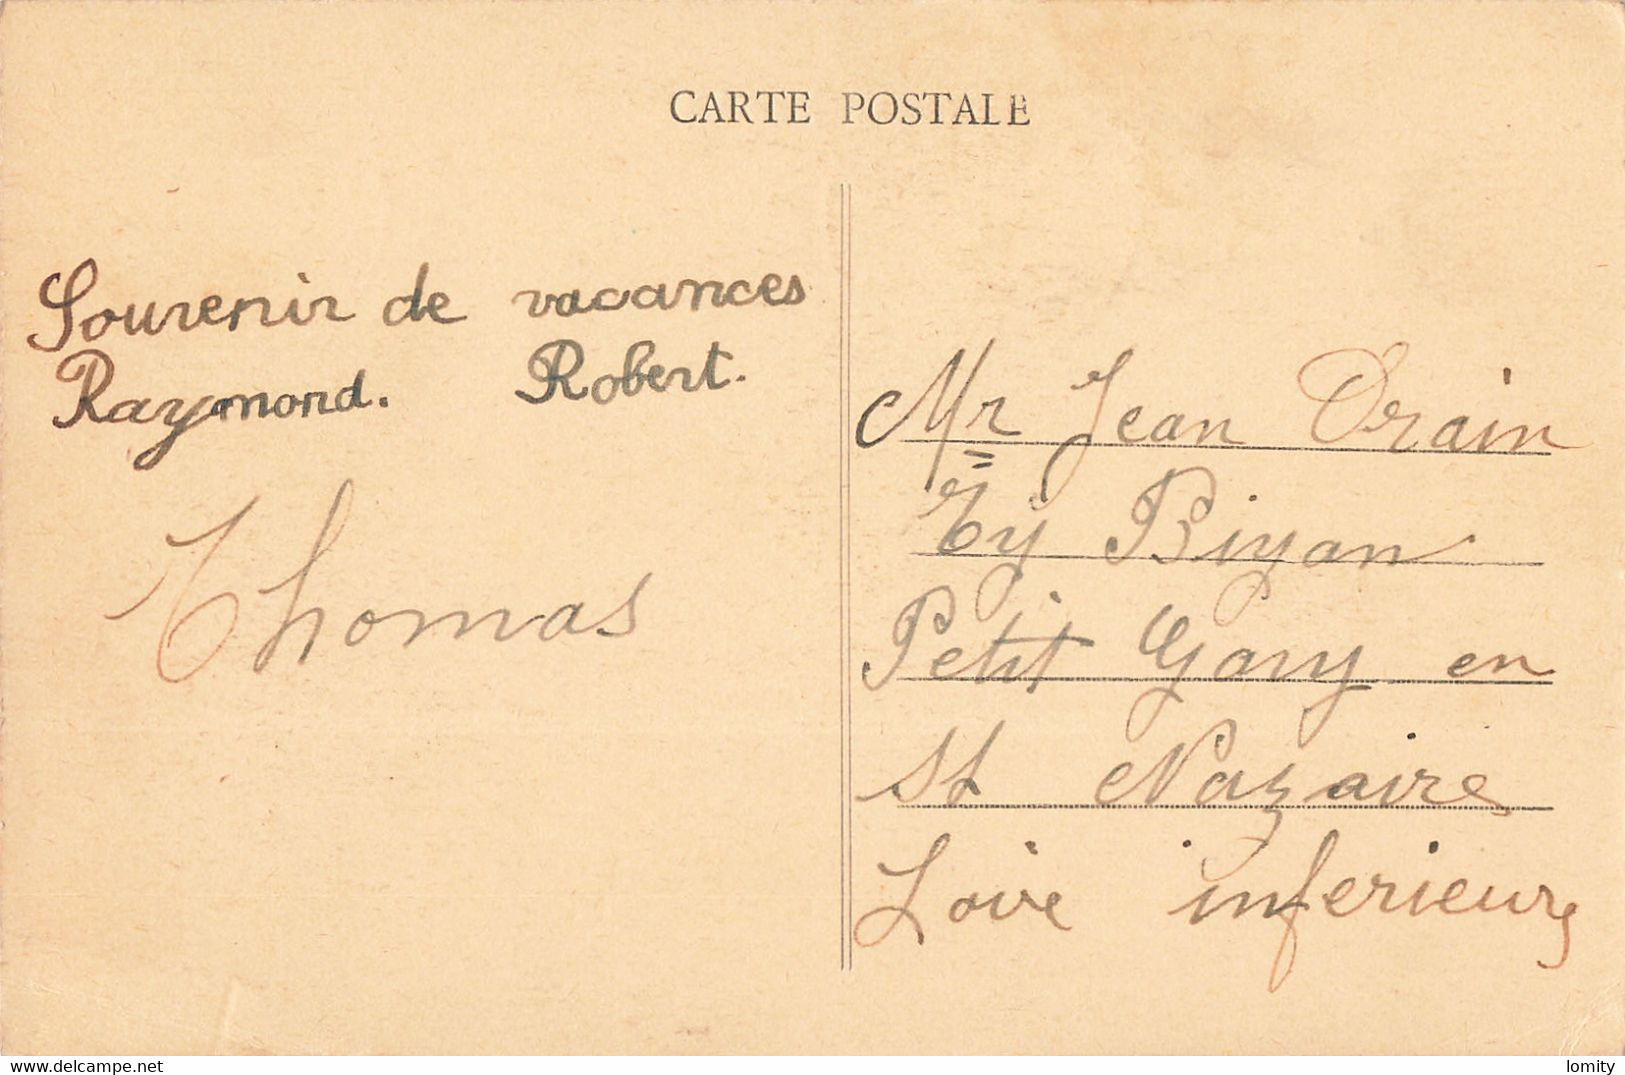 CARTE POSTALE
Souvenir de vacances
Raymond. Robert.
Thomas
Mr Jean Drain
Ty Bizan
Petit Gavy en
St Nazaire
Loire inferieure
delcampe.net
lomity